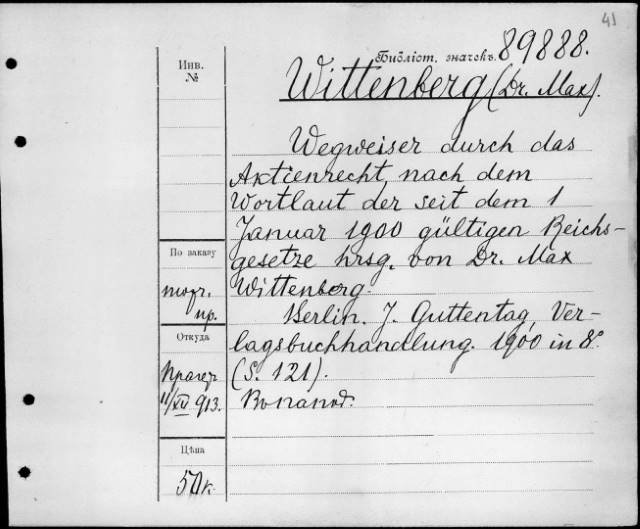 41
Библіот. значекъ 89888.
Wittenberg (Dr. Max).
Инв.
№
Wegweiser durch das
Aktienrecht nach dem
Wortlaut der seit dem 1
Januar 1900 gültigen Reichs-
gesetze hrsg. von Dr. Max
Wittenberg.
Berlin. J. Guttentag, Ver-
lagsbuchhandlung. 1900 in 8°
(S. 121).
По заказу
пр.
Откуда
Прагер
11/XII 913.
Цѣна
50 к.